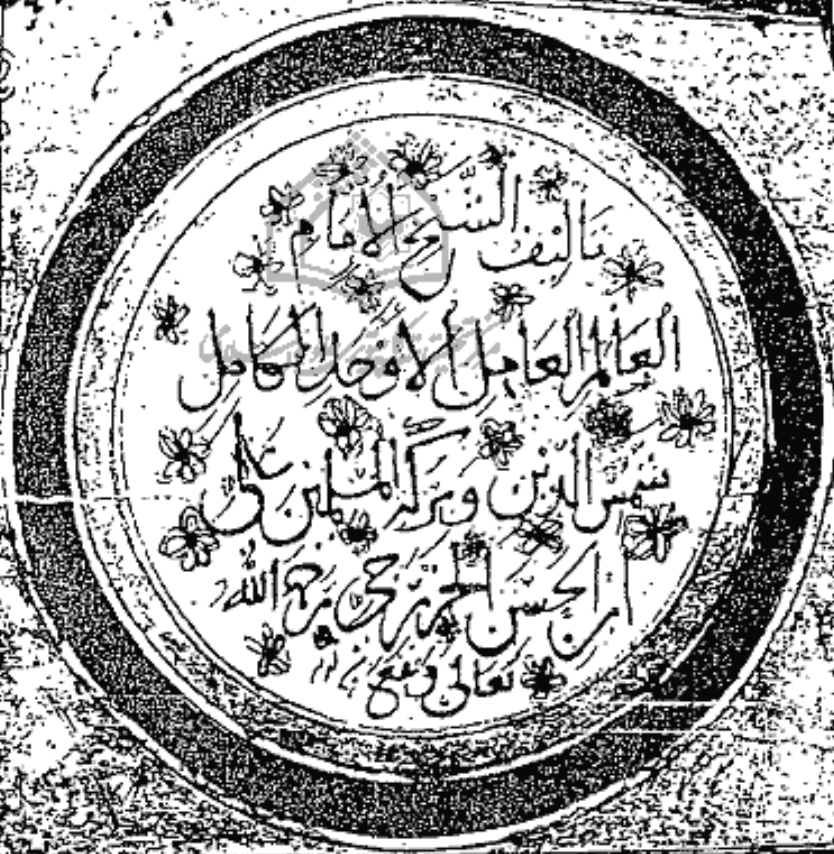 تاليف الشيخ الامام
العالم العامل الاوحد الكامل
شمس الدين وبركة المسلمين على
ابن الحسن الخزرجى رحمه الله
تعالى ونفع به